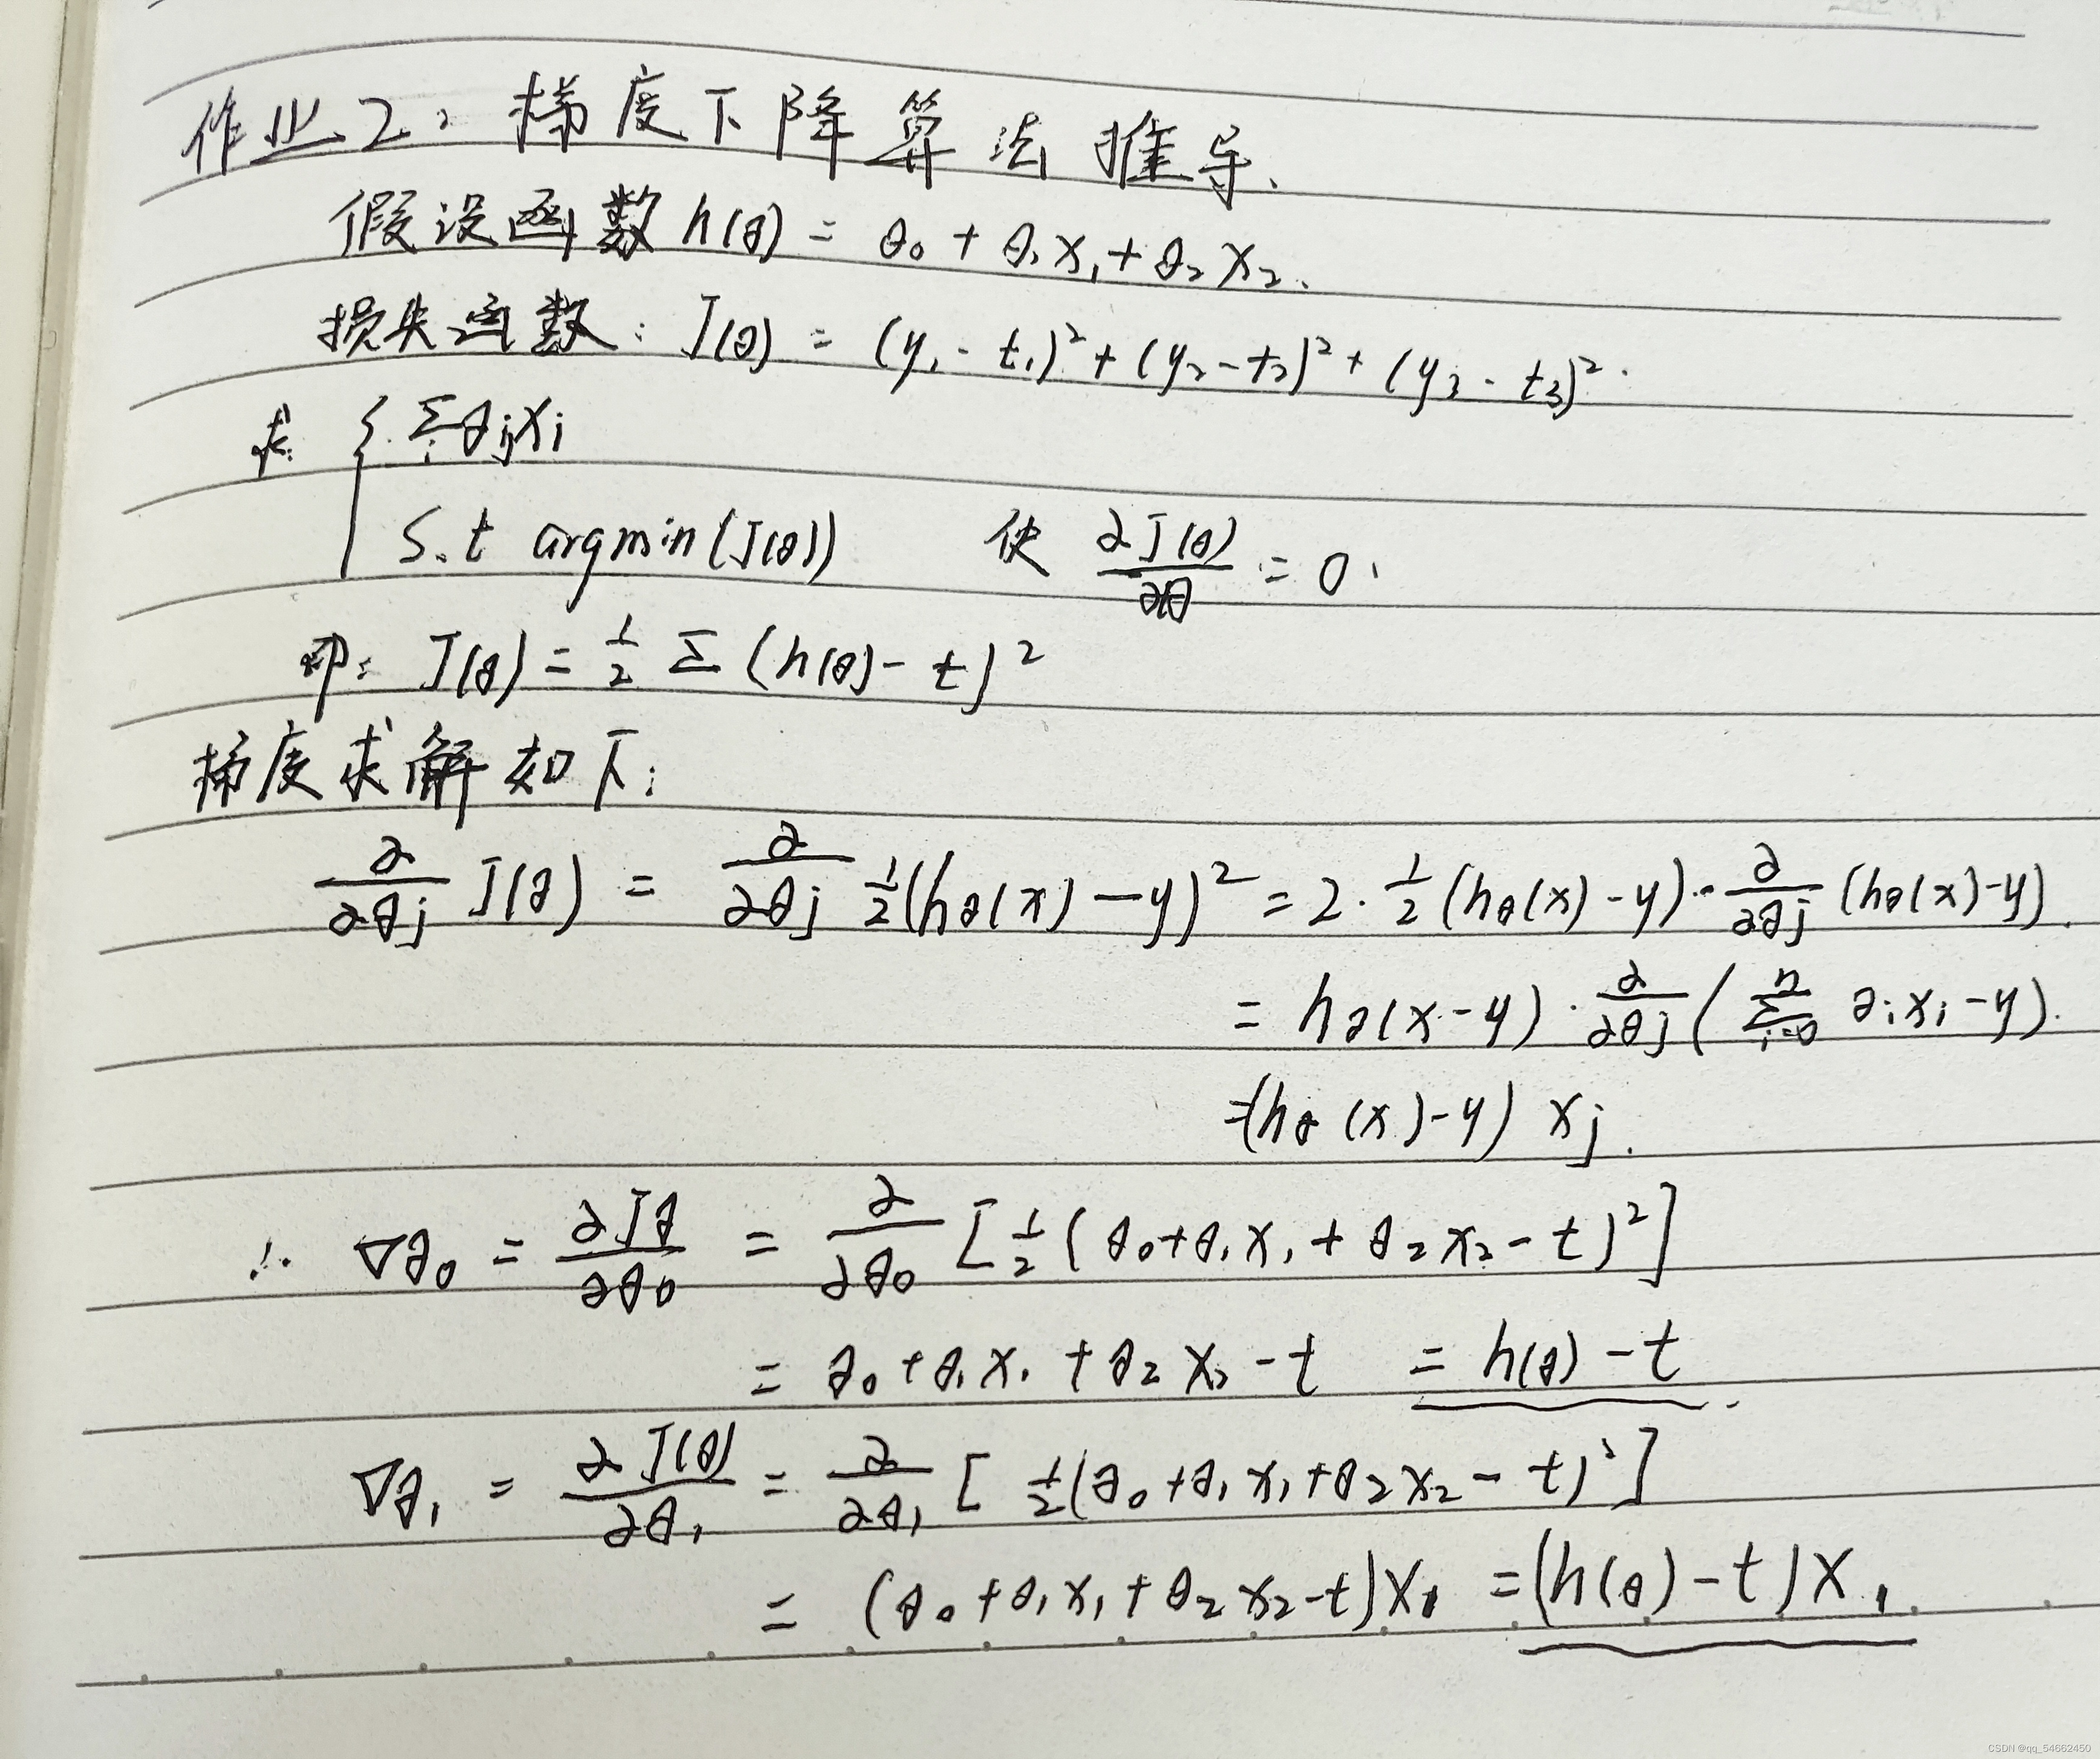 作业2: 梯度下降算法推导.
假设函数 h(θ) = θ₀ + θ₁x₁ + θ₂x₂.
损失函数: J(θ) = (y₁ - t₁)² + (y₂ - t₂)² + (y₃ - t₃)².
求: { Σᵢ θⱼxᵢ
s.t argmin(J(θ)) 使 ∂J(θ)/∂θ = 0.
即: J(θ) = 1/2 Σ (h(θ) - t)²
梯度求解如下:
∂/∂θⱼ J(θ) = ∂/∂θⱼ 1/2 (hθ(x) - y)² = 2·1/2 (hθ(x) - y)·∂/∂θⱼ (hθ(x) - y).
= hθ(x - y)·∂/∂θⱼ (Σⁿᵢ₌₀ θᵢxᵢ - y).
= (hθ(x) - y) xⱼ.
∴ ∇θ₀ = ∂Jθ/∂θ₀ = ∂/∂θ₀ [1/2 (θ₀ + θ₁x₁ + θ₂x₂ - t)²]
= θ₀ + θ₁x₁ + θ₂x₂ - t = h(θ) - t.
∇θ₁ = ∂J(θ)/∂θ₁ = ∂/∂θ₁ [1/2 (θ₀ + θ₁x₁ + θ₂x₂ - t)²]
= (θ₀ + θ₁x₁ + θ₂x₂ - t)x₁ = (h(θ) - t)x₁
CSDN @qq_54662450